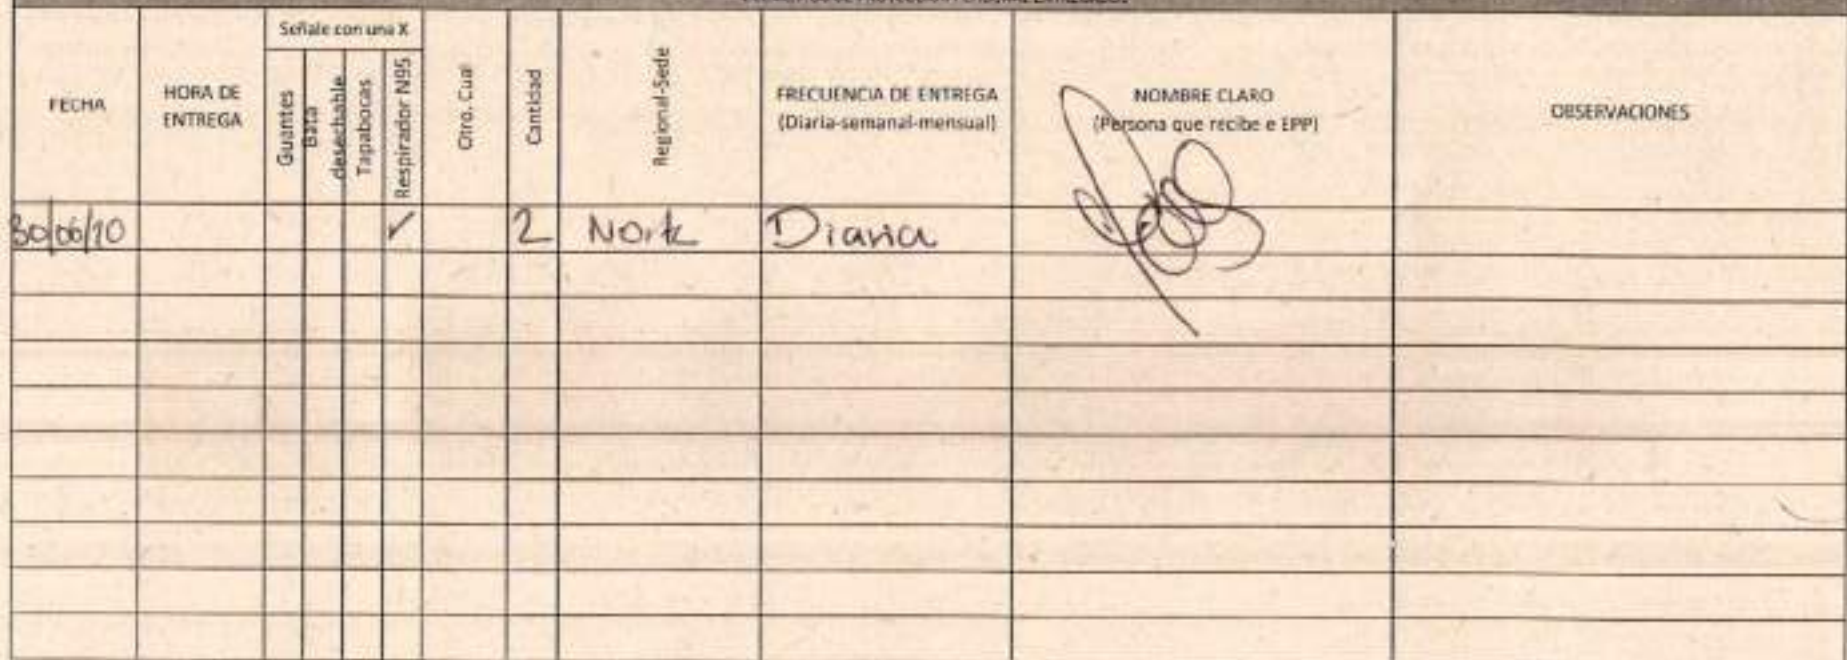 Señale con una X
FECHA
HORA DE
ENTREGA
Guantes
Bata
desechable
Tapabocas
Respirador N95
Otro. Cual
Cantidad
Regional-Sede
FRECUENCIA DE ENTREGA
(Diaria-semanal-mensual)
NOMBRE CLARO
(Persona que recibe e EPP)
OBSERVACIONES
30/06/20 ✓ 2 Norte Diaria